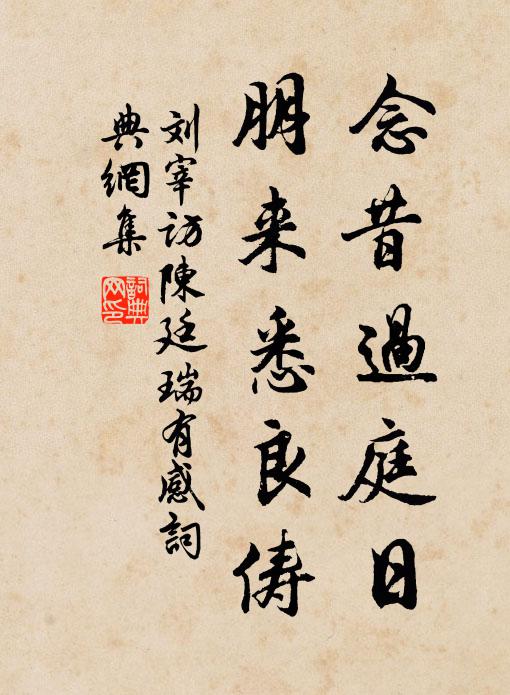 念昔過庭日
朋来悉良俦
刘宰访陳廷瑞有感詞
典網集
詞典
网印